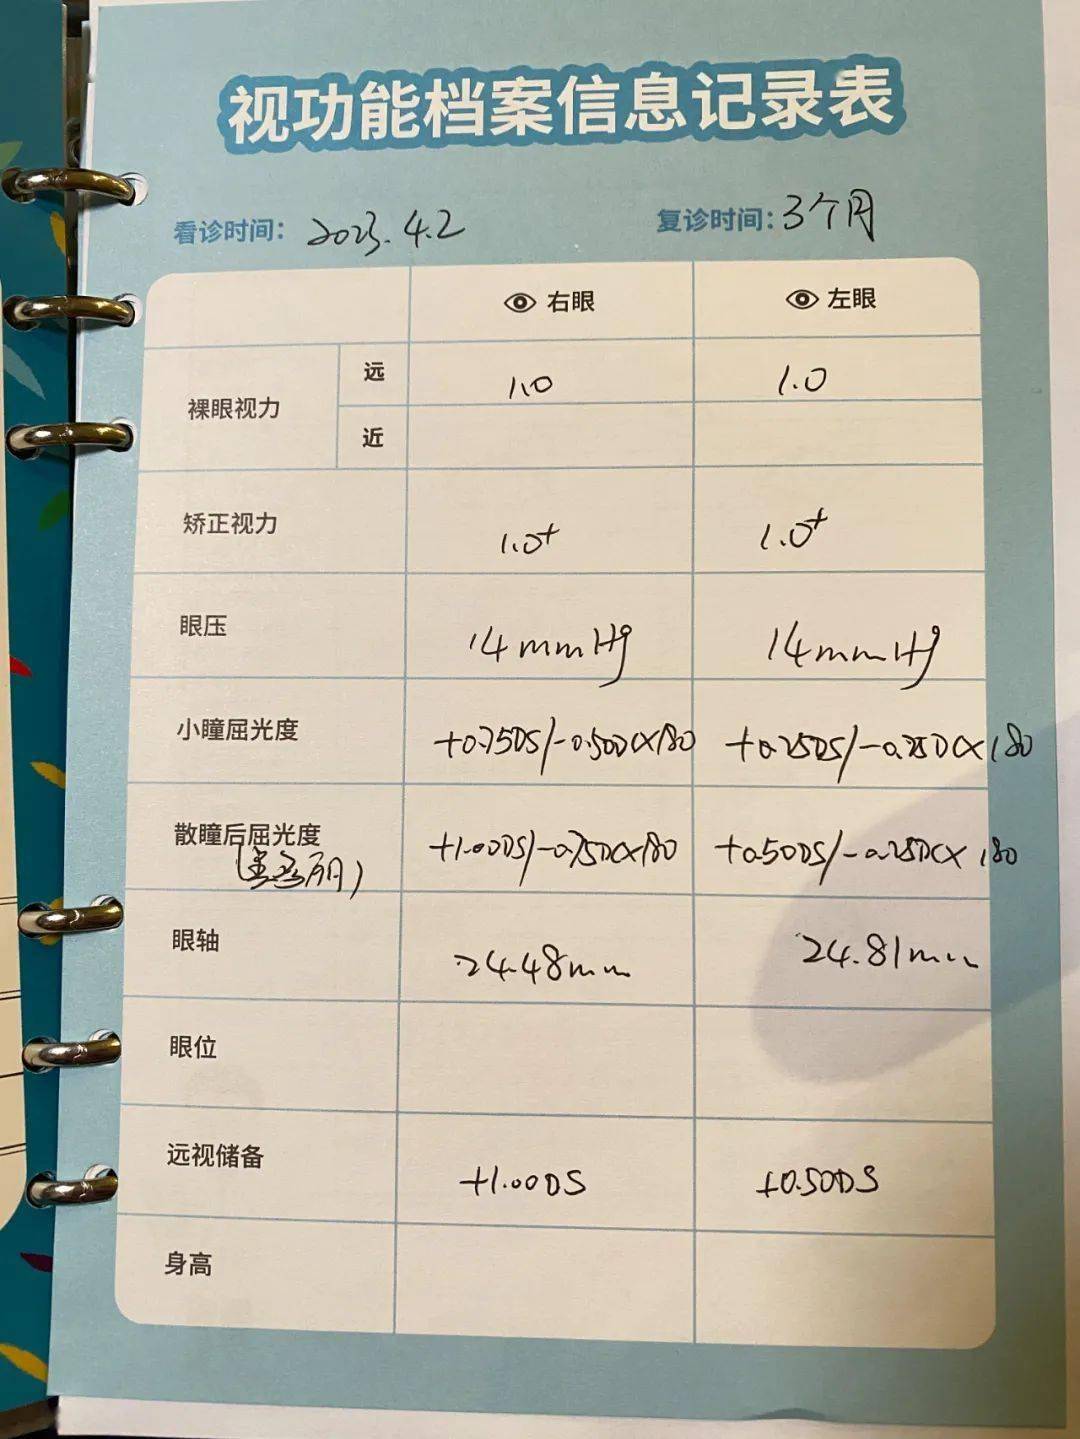 视功能档案信息记录表
看诊时间: 2023.4.2 复诊时间: 3个月
右眼 左眼
裸眼视力 远 1.0 1.0
近
矫正视力 1.0+ 1.0+
眼压 14mmHg 14mmHg
小瞳屈光度 +0.75DS/-0.50DC×180 +0.25DS/-0.25DC×180
散瞳后屈光度 +1.00DS/-0.75DC×180 +0.50DS/-0.25DC×180
眼轴 24.48mm 24.81mm
眼位
远视储备 +1.00DS +0.50DS
身高